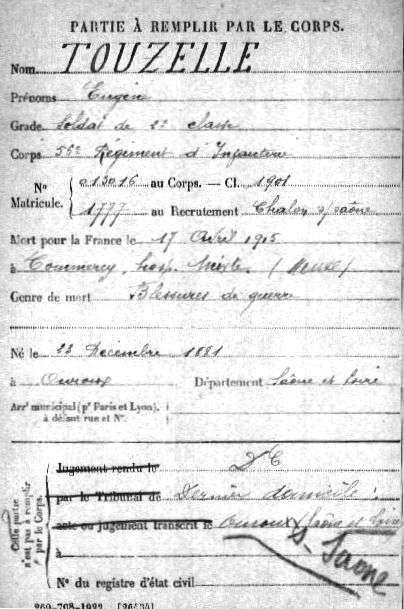 PARTIE À REMPLIR PAR LE CORPS.
Nom TOUZELLE
Prénoms Eugène
Grade Soldat de 2e classe
Corps 56e Régiment d'Infanterie
No Matricule. { 013016 au Corps. — Cl. 1901
1777 au Recrutement Chalon s/saône
Mort pour la France le 17 Avril 1915
à Commercy, hosp. Mixte (Meuse)
Genre de mort Blessures de guerre
Né le 23 Décembre 1881
à Ouroux Département Saône et Loire
Arrt municipal (pr Paris et Lyon),
à défaut rue et No.
Cette partie
n'est pas à remplir
par le Corps.
Jugement rendu le DC
par le Tribunal de Dernier domicile :
acte ou jugement transcrit le Ouroux Saône et Loire
à S- Saone
No du registre d'état civil
269-708-1922. [26434]